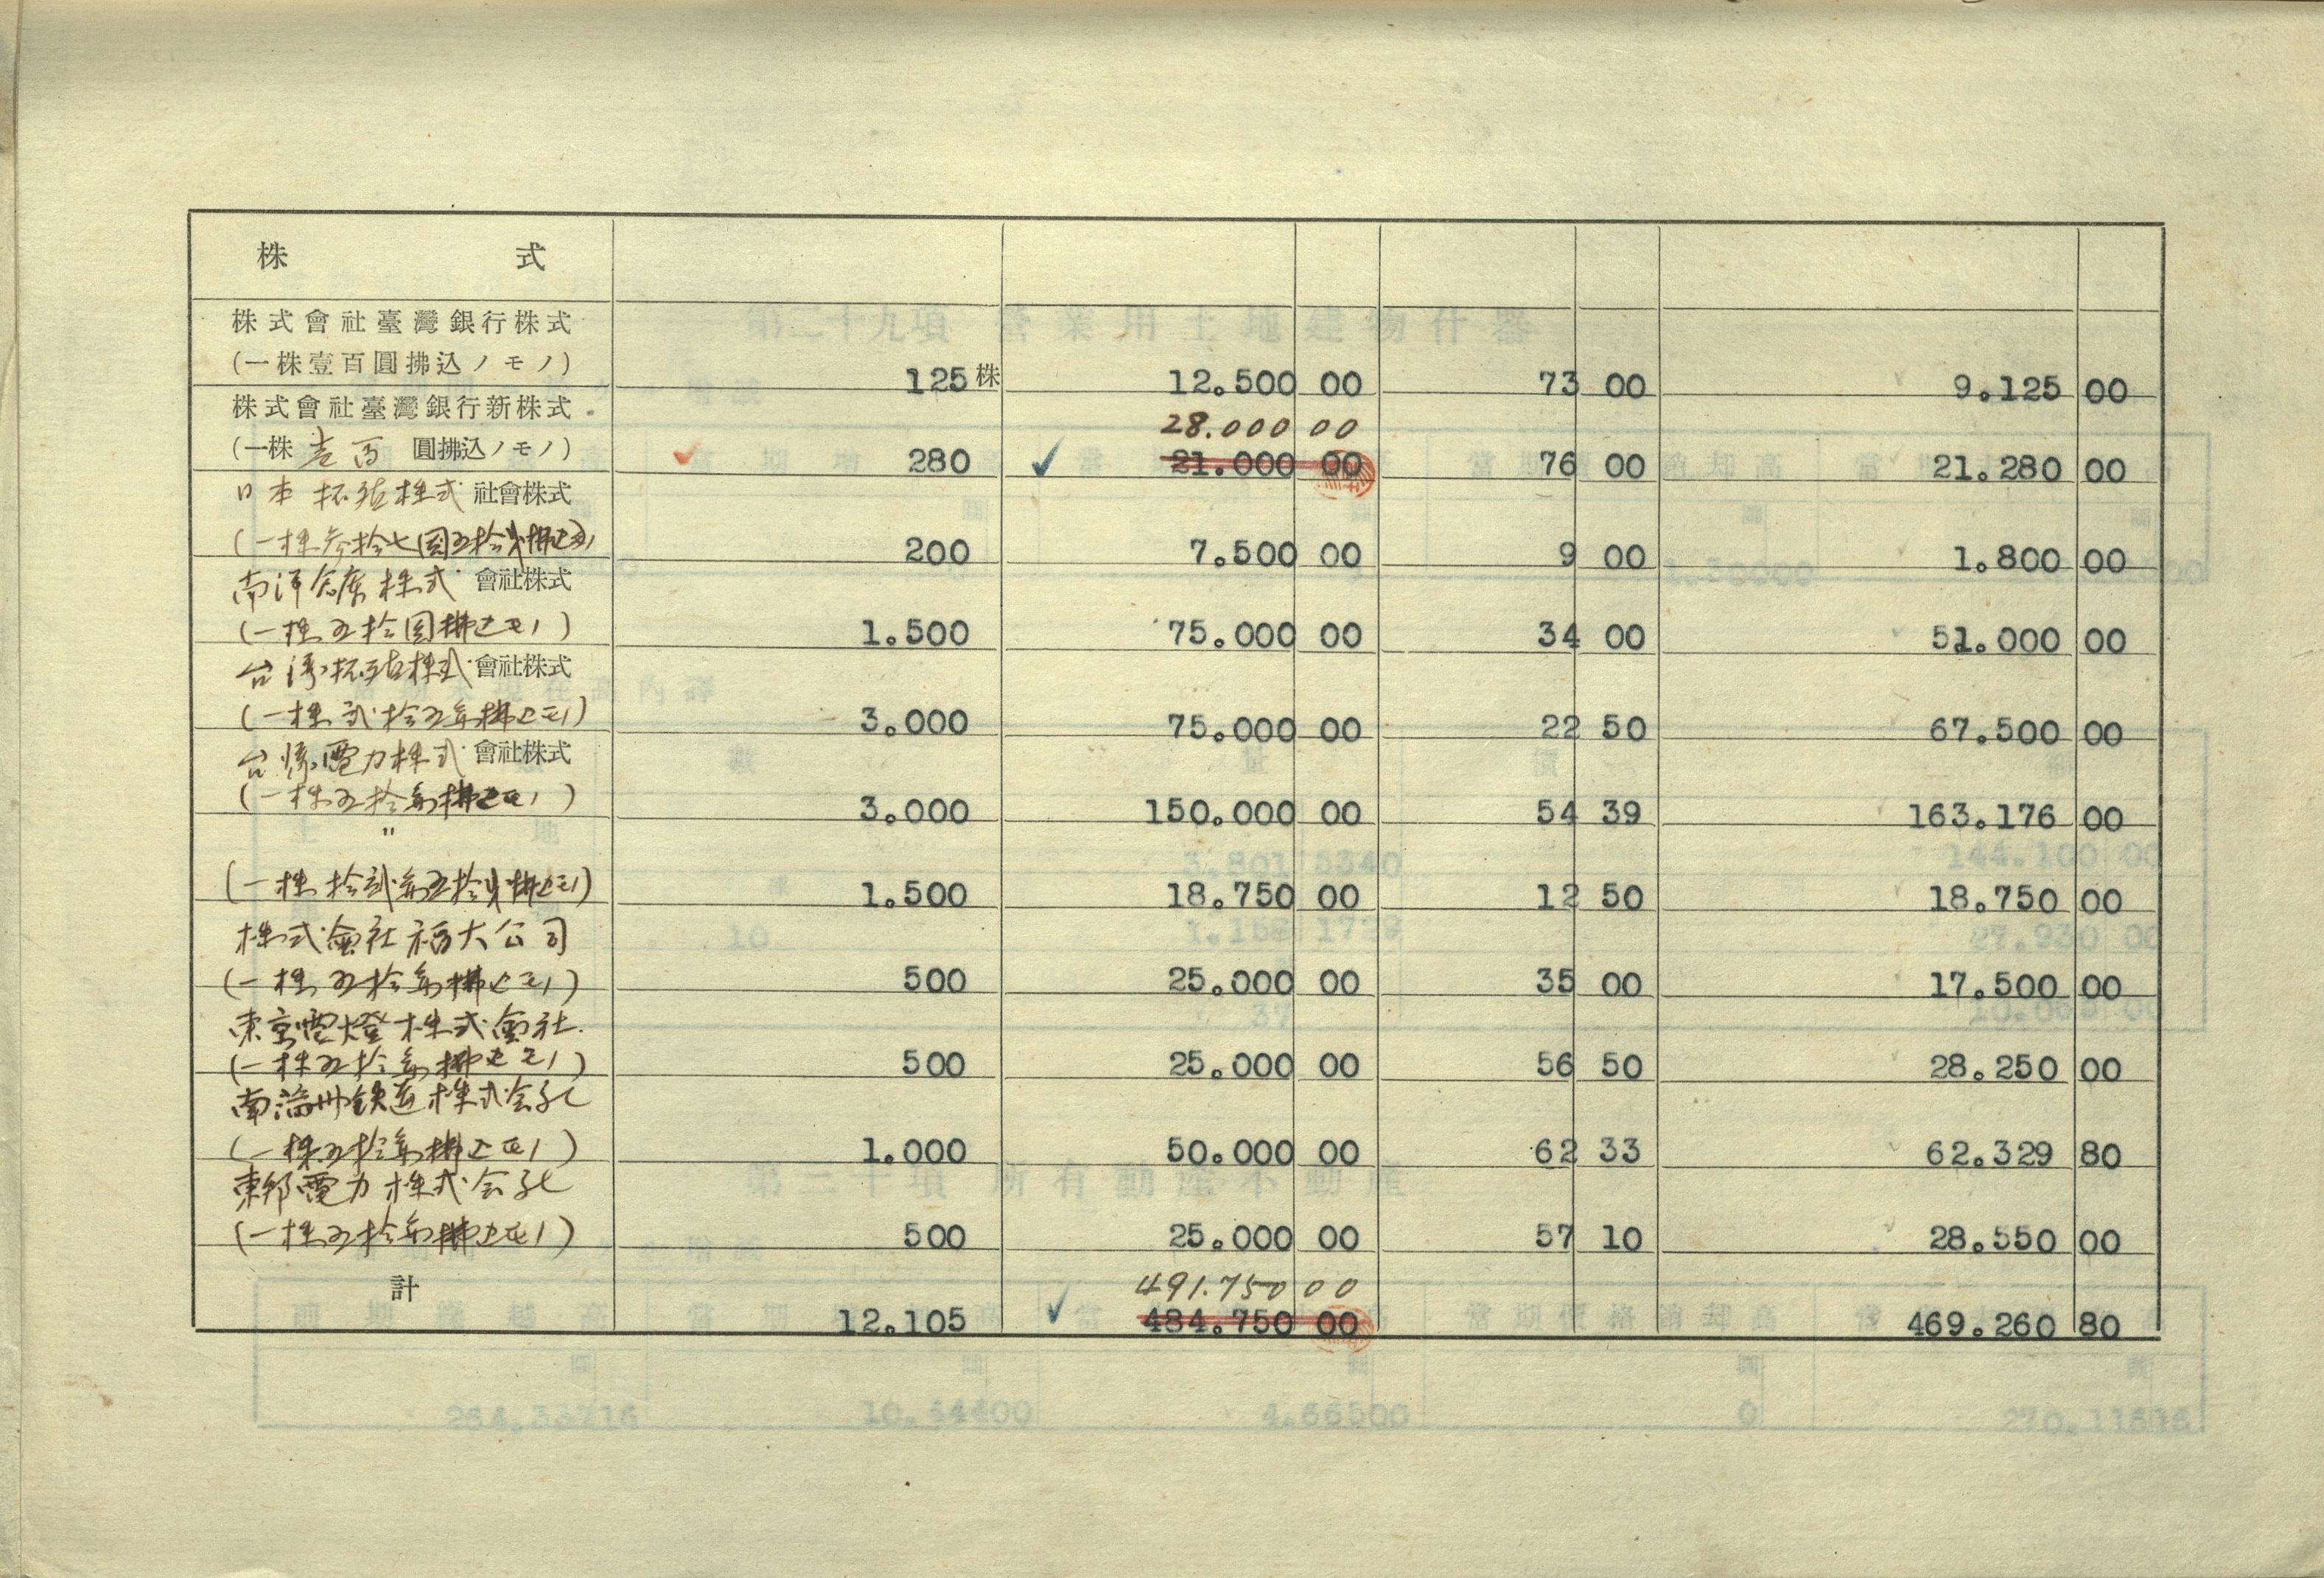 株式
株式會社臺灣銀行株式
(一株壹百圓拂込ノモノ) 125株 12.500 00 73 00 9.125 00
株式會社臺灣銀行新株式
28.000 00
(一株壱百圓拂込ノモノ) 280 21.000 00 76 00 21.280 00
日本拓殖株式社會株式
(一株参拾七圓五拾銭拂込モノ) 200 7.500 00 9 00 1.800 00
南洋倉庫株式會社株式
(一株五拾圓拂込モノ) 1.500 75.000 00 34 00 51.000 00
台湾拓殖株式會社株式
(一株弐拾五円拂込モノ) 3.000 75.000 00 22 50 67.500 00
台湾電力株式會社株式
(一株五拾円拂込モノ) 3.000 150.000 00 54 39 163.176 00
〃
(一株拾弐円五拾銭拂込モノ) 1.500 18.750 00 12 50 18.750 00
株式會社福大公司
(一株五拾円拂込モノ) 500 25.000 00 35 00 17.500 00
東京電燈株式會社
(一株五拾円拂込モノ) 500 25.000 00 56 50 28.250 00
南満州鉄道株式会社
(一株五拾円拂込モノ) 1.000 50.000 00 62 33 62.329 80
東邦電力株式会社
(一株五拾円拂込モノ) 500 25.000 00 57 10 28.550 00
計
491.750 00
12.105 484.750 00 469.260 80